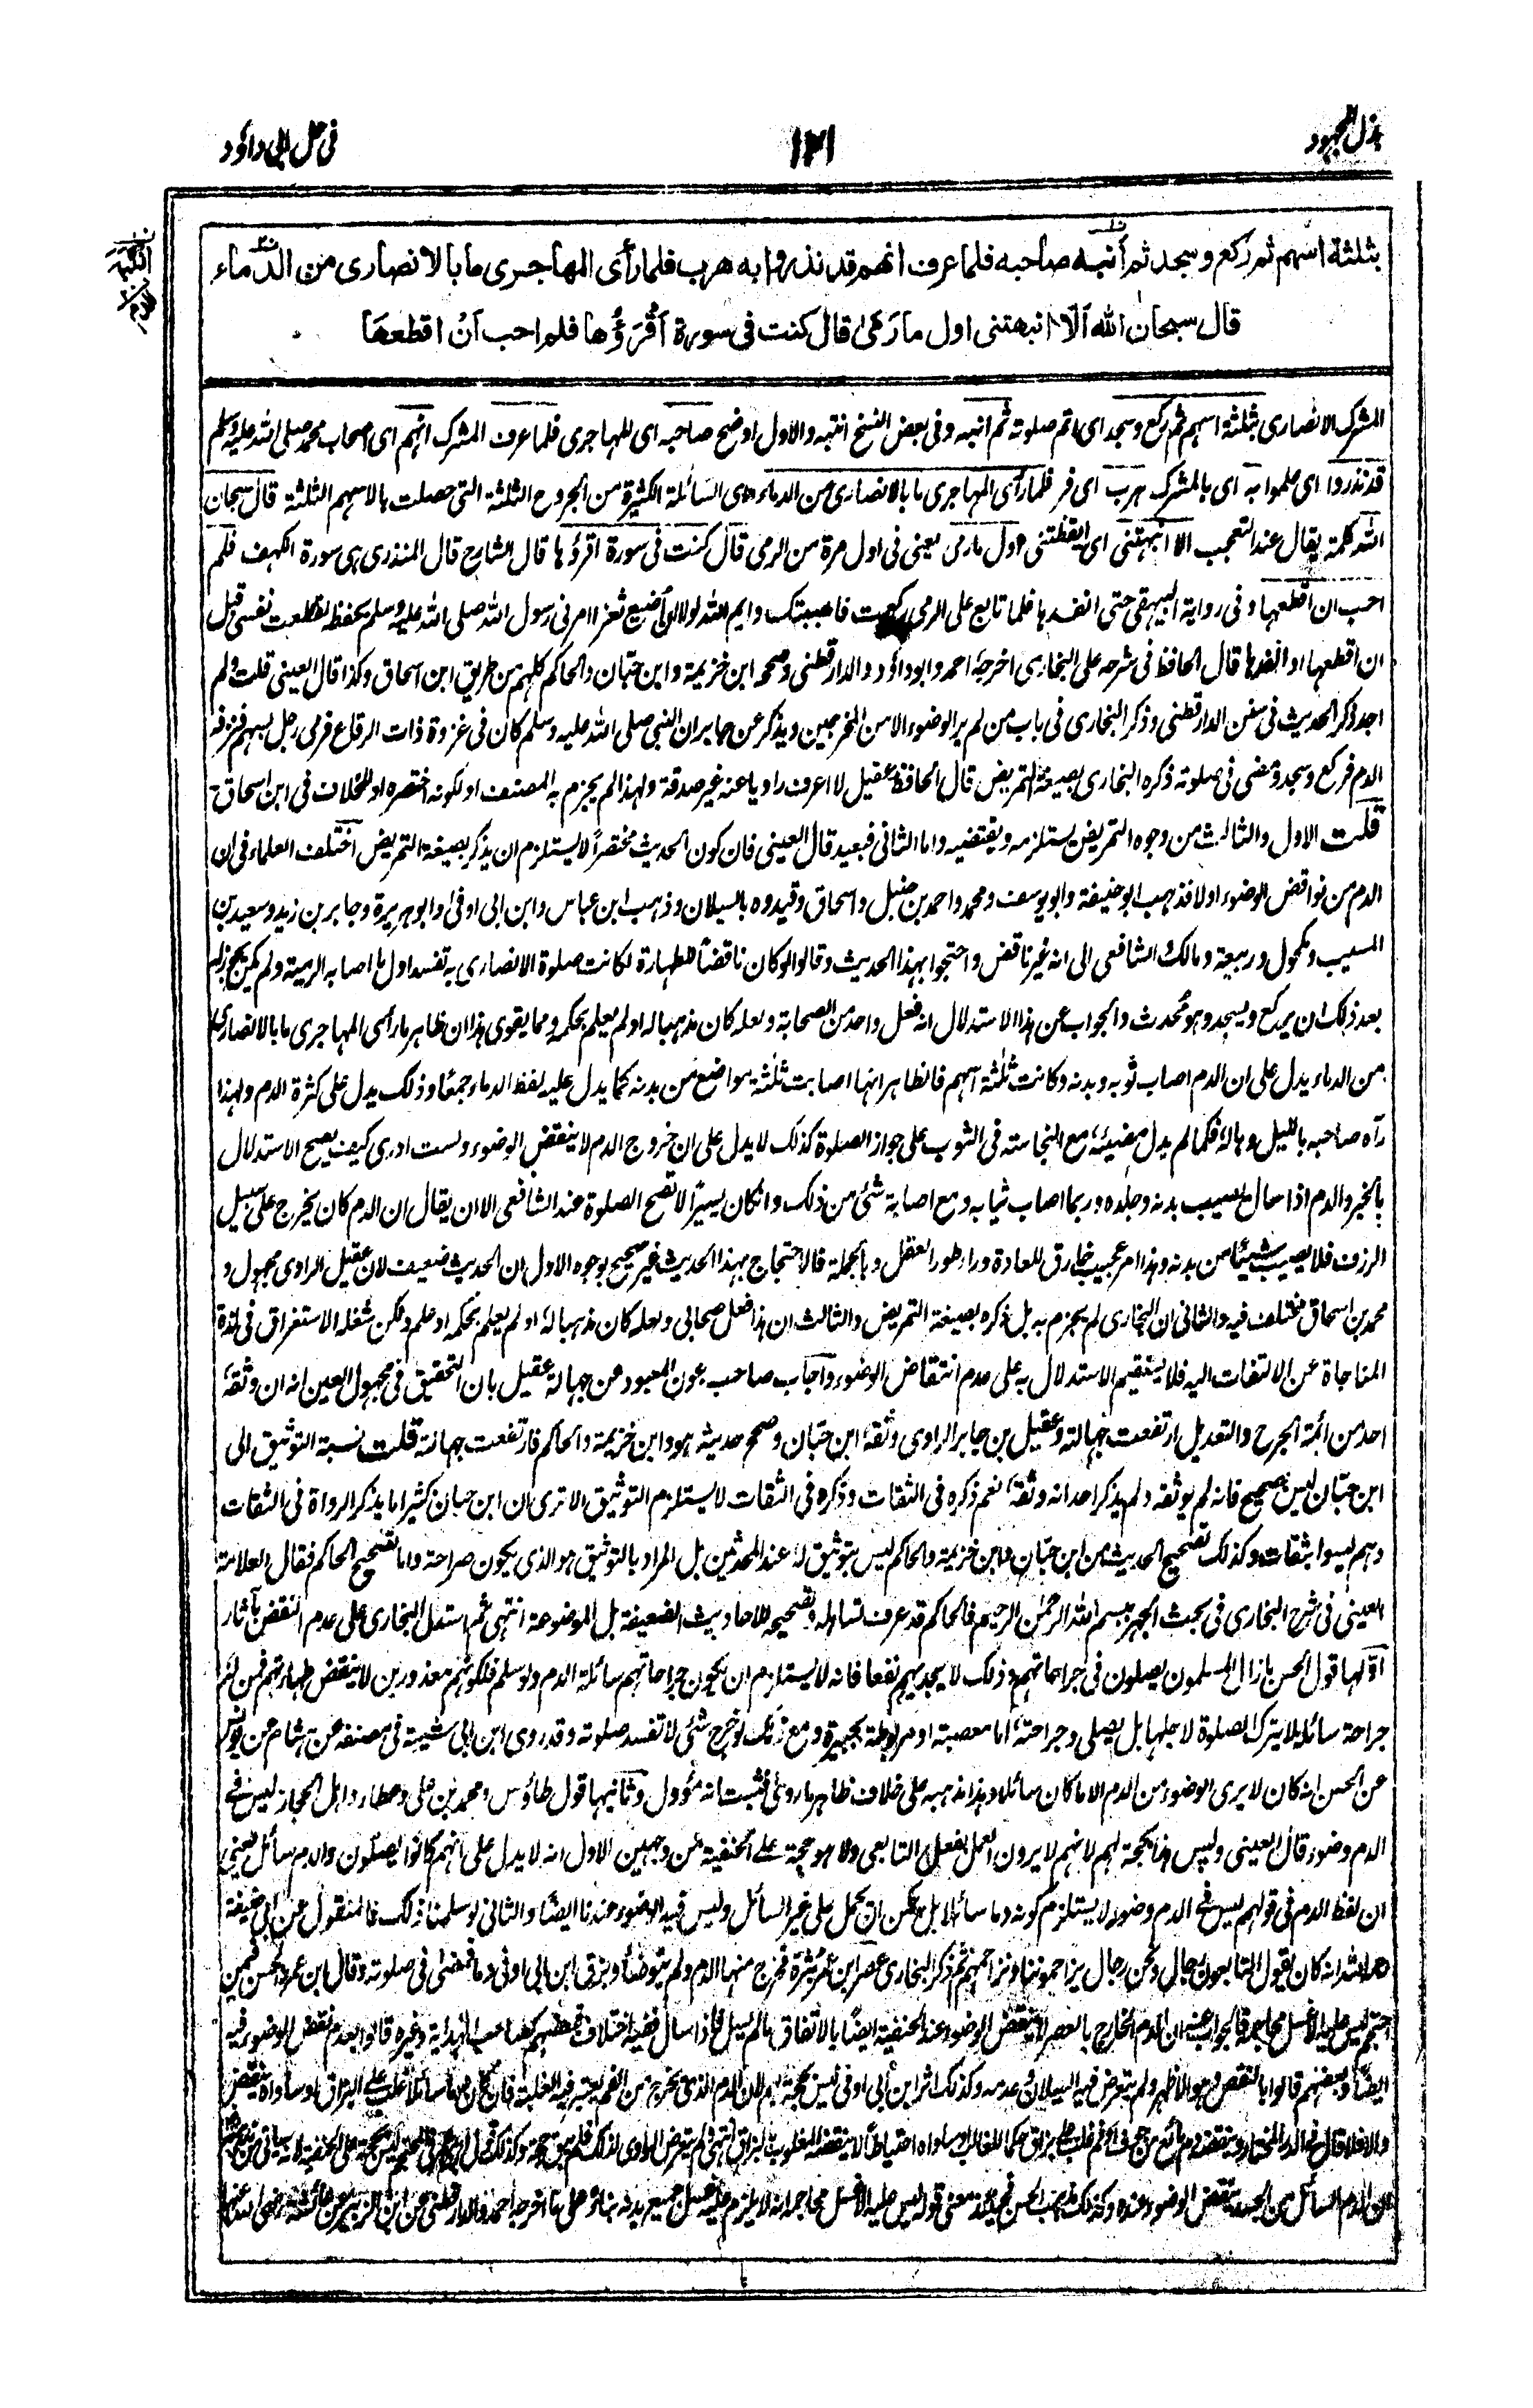 بذل المجهود
١٢١
فی حل ابی داؤد
بثلثة اسهم ثم ركع وسجد ثم أنبه صاحبه فلما عرف انهم قد نذروا به هرب فلما رأى المهاجرى ما بالانصارى من الدماء
قال سبحان الله ألا انبهتنى اول ما رمى قال كنت فى سورة أقرؤها فلم احب أن اقطعها
المشرك الانصارى بثلثة اسهم ثم ركع وسجد اى اتم صلوته ثم انبه وفى بعض النسخ انتبه والاول اوضح صاحبه اى المهاجرى فلما عرف المشرك انهم اى اصحاب محمد صلى الله عليه وسلم
قد نذروا اى علموا به اى بالمشرك هرب اى فر فلما رأى المهاجرى ما بالانصارى من الدماء اى السائلة الكثيرة من الجروح الثلثة التى حصلت بالاسهم الثلثة قال سبحان
الله كلمة يقال عند التعجب الا انبهتنى اى ايقظتنى اول ما رمى يعنى فى اول مرة من الرمى قال كنت فى سورة اقرؤها قال الشارح قال المنذرى هى سورة الكهف فلم
احب ان اقطعها وفى رواية البيهقى حتى انفدها فلما تابع على الرمى ركعت وايم الله لولا ان أضيع ثغرا امرنى رسول الله صلى الله عليه وسلم بحفظه لقطعت نفسى قبل
ان اقطعها او انفدها قال الحافظ فى شرحه على البخارى اخرجه احمد وابوداؤد والدارقطنى وصححه ابن خزيمة وابن حبان والحاكم كلهم من طريق ابن اسحاق وكذا قال العينى قلت ولم
اجد ذكر الحديث فى سنن الدارقطنى وذكر البخارى فى باب من لم ير الوضوء الا من المخرجين ويذكر عن جابر ان النبى صلى الله عليه وسلم كان فى غزوة ذات الرقاع فرمى رجل بسهم فنزفه
الدم فركع وسجد ومضى فى صلوته ذكره البخارى بصيغة التمريض قال الحافظ عقيل لا اعرف راويا عنه غير صدقة ولهذا لم يجزم به المصنف او لكونه اختصره او للخلاف فى ابن اسحاق
قلت الاول والثالث من وجوه التمريض يستلزمه ويقتضيه واما الثانى فبعيد قال العينى فان كون الحديث مختصراً لا يستلزم ان يذكر بصيغة التمريض اختلف العلماء فى ان
الدم من نواقض الوضوء او لا فذهب ابو حنيفة وابويوسف ومحمد واحمد بن حنبل واسحاق وقيدوه بالسيلان وذهب ابن عباس وابن ابى اوفى وابوهريرة وجابر بن زيد وسعيد بن
المسيب ومكحول وربيعة ومالك والشافعى الى انه غير ناقض واحتجوا بهذا الحديث وقالوا لو كان ناقضاً للطهارة لكانت صلوة الانصارى به تفسد اول ما اصابه الرمية ولم يكن يجوز له
بعد ذلك ان يركع ويسجد وهو محدث والجواب عن هذا الاستدلال انه فعل واحد من الصحابة ولعله كان مذهبا له او لم يعلم بحكمه ومما يقوى هذا ان ظاهر ما رأى المهاجرى ما بالانصارى
من الدماء يدل على ان الدم اصاب ثوبه وبدنه وكانت ثلثة اسهم فالظاهر انها اصابت ثلثة مواضع من بدنه كما يدل عليه لفظ الدماء جمعا وذلك يدل على كثرة الدم ولهذا
رآه صاحبه بالليل وهاله فكما لم يدل مضيه مع النجاسة فى الثوب على جواز الصلوة كذلك لا يدل على ان خروج الدم لا ينقض الوضوء ولست ادرى كيف يصح الاستدلال
بالخبر والدم اذا سال يصيب بدنه وجلده وربما اصاب ثيابه ومع اصابة شئ من ذلك وان كان يسيرا لا تصح الصلوة عند الشافعى الا ان يقال ان الدم كان يخرج على سبيل
الزرق فلا يصيب شيئا من بدنه وهذا امر عجيب خارق للعادة وراء طور العقل وبالجملة فالاحتجاج بهذا الحديث غير صحيح بوجوه الاول ان الحديث ضعيف لان عقيل الراوى مجهول و
محمد بن اسحاق مختلف فيه والثانى ان البخارى لم يجزم به بل ذكره بصيغة التمريض والثالث ان هذا فعل صحابى ولعله كان مذهبا له او لم يعلم بحكمه او علم ولكن شغله الاستغراق فى لذة
المناجاة عن الالتفات اليه فلا يستقيم الاستدلال به على عدم انتقاض الوضوء واجاب صاحب عون المعبود عن جهالة عقيل بان التحقيق فى مجهول العين انه ان وثقه
احد من ائمة الجرح والتعديل ارتفعت جهالته وعقيل بن جابر الراوى وثقه ابن حبان وصحح حديثه هو وابن خزيمة والحاكم فارتفعت جهالته قلت نسبة التوثيق الى
ابن حبان ليس بصحيح فانه لم يوثقه ولم يذكر احد انه وثقه نعم ذكره فى الثقات وذكره فى الثقات لا يستلزم التوثيق الا ترى ان ابن حبان كثيرا ما يذكر الرواة فى الثقات
وهم ليسوا بثقات وكذلك تصحيح الحديث من ابن حبان وابن خزيمة والحاكم ليس بتوثيق له عند المحدثين بل المراد بالتوثيق هو الذى يكون صراحة واما تصحيح الحاكم فقال العلامة
العينى فى شرح البخارى فى بحث الجهر ببسم الله الرحمن الرحيم فالحاكم قد عرف تساهله وتصحيحه للاحاديث الضعيفة بل الموضوعة انتهى ثم استدل البخارى على عدم النقض بآثار
اولها قول الحسن ما زال المسلمون يصلون فى جراحاتهم وذلك لا يجديهم نفعا فانه لا يستلزم ان يكون جراحاتهم سائلة الدم ولو سلم فلكونهم معذورين لا ينقض طهارتهم فمن له
جراحة سائلة لا يترك الصلوة لاجلها بل يصلى وجراحته اما معصبة او مربوطة بجبيرة ومع ذلك لو خرج شئ لا تفسد صلوته وقد روى ابن ابى شيبة فى مصنفه عن هشام عن يونس
عن الحسن انه كان لا يرى الوضوء من الدم الا ما كان سائلا وهذا مذهبه على خلاف ظاهر ما روى فثبت انه مؤول وثانيها قول طاؤس ومحمد بن على وعطاء واهل الحجاز ليس فى
الدم وضوء قال العينى وليس هذا بحجة لهم لانهم لا يرون العمل بفعل التابعى ولا هو حجة على الحنفية من وجهين الاول انه لا يدل على انهم كانوا يصلون والدم سائل يعنى
ان لفظ الدم فى قولهم ليس فى الدم وضوء لا يستلزم كونه دما سائلا بل يمكن ان يحمل على غير السائل وليس فيه الوضوء عندنا ايضا والثانى لو سلمنا ذلك فالمنقول عن ابى حنيفة
رحمه الله انه كان يقول التابعون رجال ونحن رجال يزاحموننا ونزاحمهم ثم ذكر البخارى عصر ابن عمر بثرة فخرج منها الدم ولم يتوضأ وبزق ابن ابى اوفى دما فمضى فى صلوته وقال ابن عمر والحسن فيمن
احتجم ليس عليه الا غسل محاجمه فالجواب عنه ان الدم الخارج بالعصر لا ينقض الوضوء عند الحنفية ايضا بالاتفاق ما لم يسل فاذا سال ففيه اختلاف فبعضهم كصاحب الهداية وغيره قالوا بعدم نقض الوضوء فيه
ايضا وبعضهم قالوا بالنقض وهو الاظهر ولم يتعرض فيه السيلان وعدمه وكذلك اثر ابن ابى اوفى ليس بحجة لهم لان الدم الذى يخرج من الفم يعتبر فيه الغلبة فان كان دما سائلا غلب على البزاق او ساواه ينقض
والا فلا قال فى الدر المختار وينقضه دم مائع من جوف او فم غلب على بزاق حكما للغالب او ساواه احتياطا لا ينقضه المغلوب بالبزاق انتهى ولم يتعرض الراوى لذلك فلم يبق حجة وكذلك
الدم السائل من الجسد ينقض الوضوء عنده وكذلك مذهب الحسن معنى قوله ليس عليه الا غسل محاجمه انه لا يلزم عليه غسل جميع بدنه